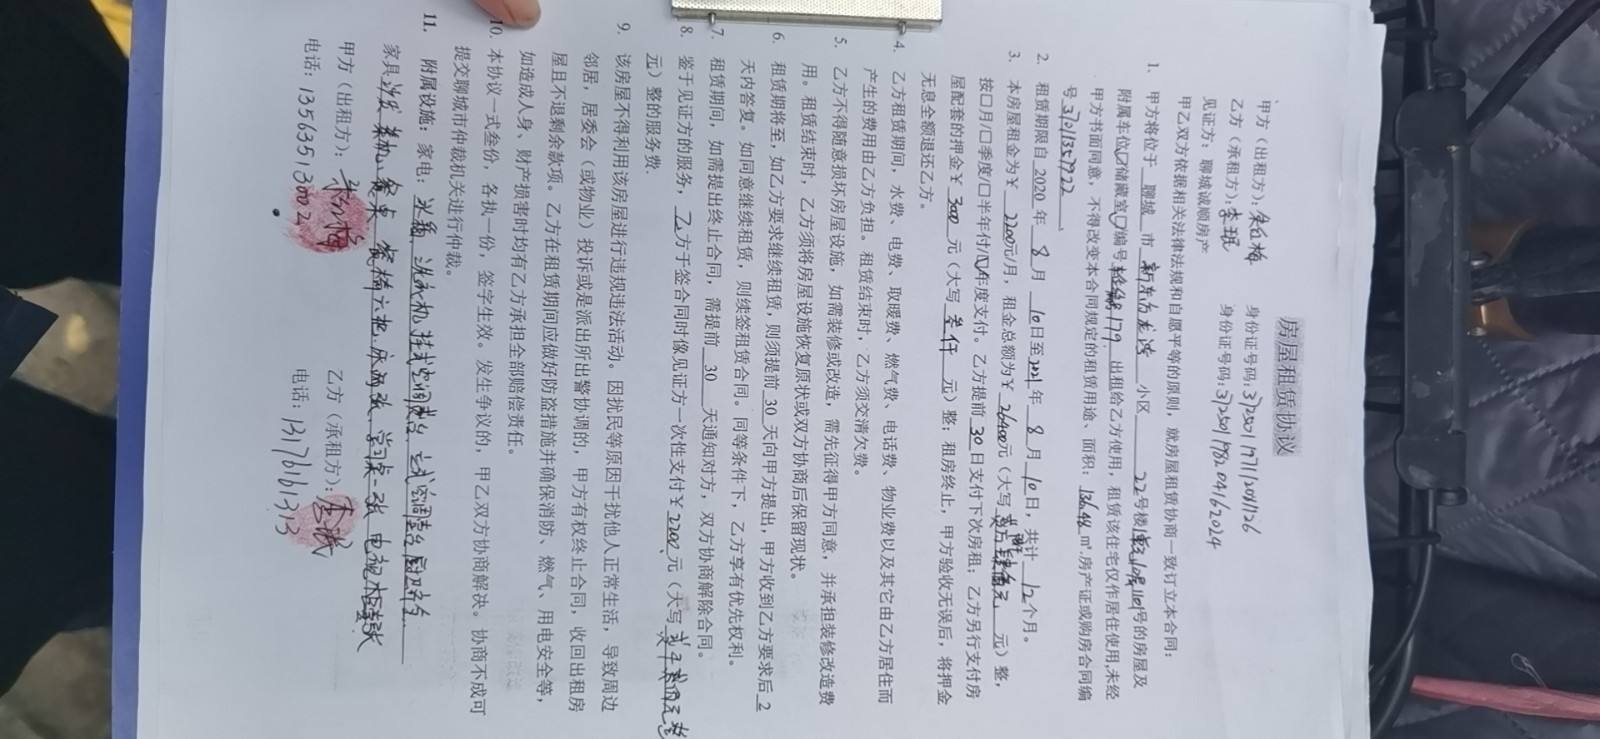 房屋租赁协议
甲方（出租方）：
身份证号码：
乙方（承租方）：李珉
身份证号码：
见证方：聊城诚顺房产
甲乙双方依据相关法律法规和自愿平等的原则，就房屋租赁协商一致订立本合同：
1. 甲方将位于 聊城 市 小区 22号楼 号的房屋及
附属车位☑储藏室☑编号 179 出租给乙方使用，租赁该住宅仅作居住使用，未经
甲方书面同意，不得改变本合同规定的租赁用途、面积：136.48㎡.房产证或购房合同编
号
2. 租赁期限自 2020 年 8 月 10 日至2021年 8 月 10 日，共计 12 个月。
3. 本房屋租金为￥ 2200元/月，租金总额为￥ 26400元（大写 元）整，
按口月/口季度/口半年付/☑年度支付。乙方提前 30 日支付下次房租；乙方另行支付房
屋配套的押金￥ 元（大写 叁仟 元）整；租房终止，甲方验收无误后，将押金
无息全额退还乙方。
4. 乙方租赁期间，水费、电费、取暖费、燃气费、电话费、物业费以及其它由乙方居住而
产生的费用由乙方负担。租赁结束时，乙方须交清欠费。
5. 乙方不得随意损坏房屋设施，如需装修或改造，需先征得甲方同意，并承担装修改造费
用。租赁结束时，乙方须将房屋设施恢复原状或双方协商后保留现状。
6. 租赁期将至，如乙方要求继续租赁，则须提前 30 天向甲方提出，甲方收到乙方要求后 2
天内答复。如同意继续租赁，则续签租赁合同。同等条件下，乙方享有优先权利。
7. 租赁期间，如需提出终止合同，需提前 30 天通知对方，双方协商解除合同。
8. 鉴于见证方的服务，乙方于签合同时像见证方一次性支付￥ 2200 元（大写
元）整的服务费.
9. 该房屋不得利用该房屋进行违规违法活动。因扰民等原因干扰他人正常生活，导致周边
邻居，居委会（或物业）投诉或是派出所出警协调的，甲方有权终止合同，收回出租房
屋且不退剩余款项。乙方在租赁期间应做好防盗措施并确保消防、燃气、用电安全等，
如造成人身、财产损害时均有乙方承担全部赔偿责任。
10. 本协议一式叁份，各执一份，签字生效。发生争议的，甲乙双方协商解决。协商不成可
提交聊城市仲裁机关进行仲裁。
11. 附属设施：家电：冰箱、洗衣机
家具沙发 茶机 餐桌 餐椅六把 床两张 学习桌一张
甲方（出租方）：
乙方（承租方）：李珉
电话：13563513002
电话：13176161313